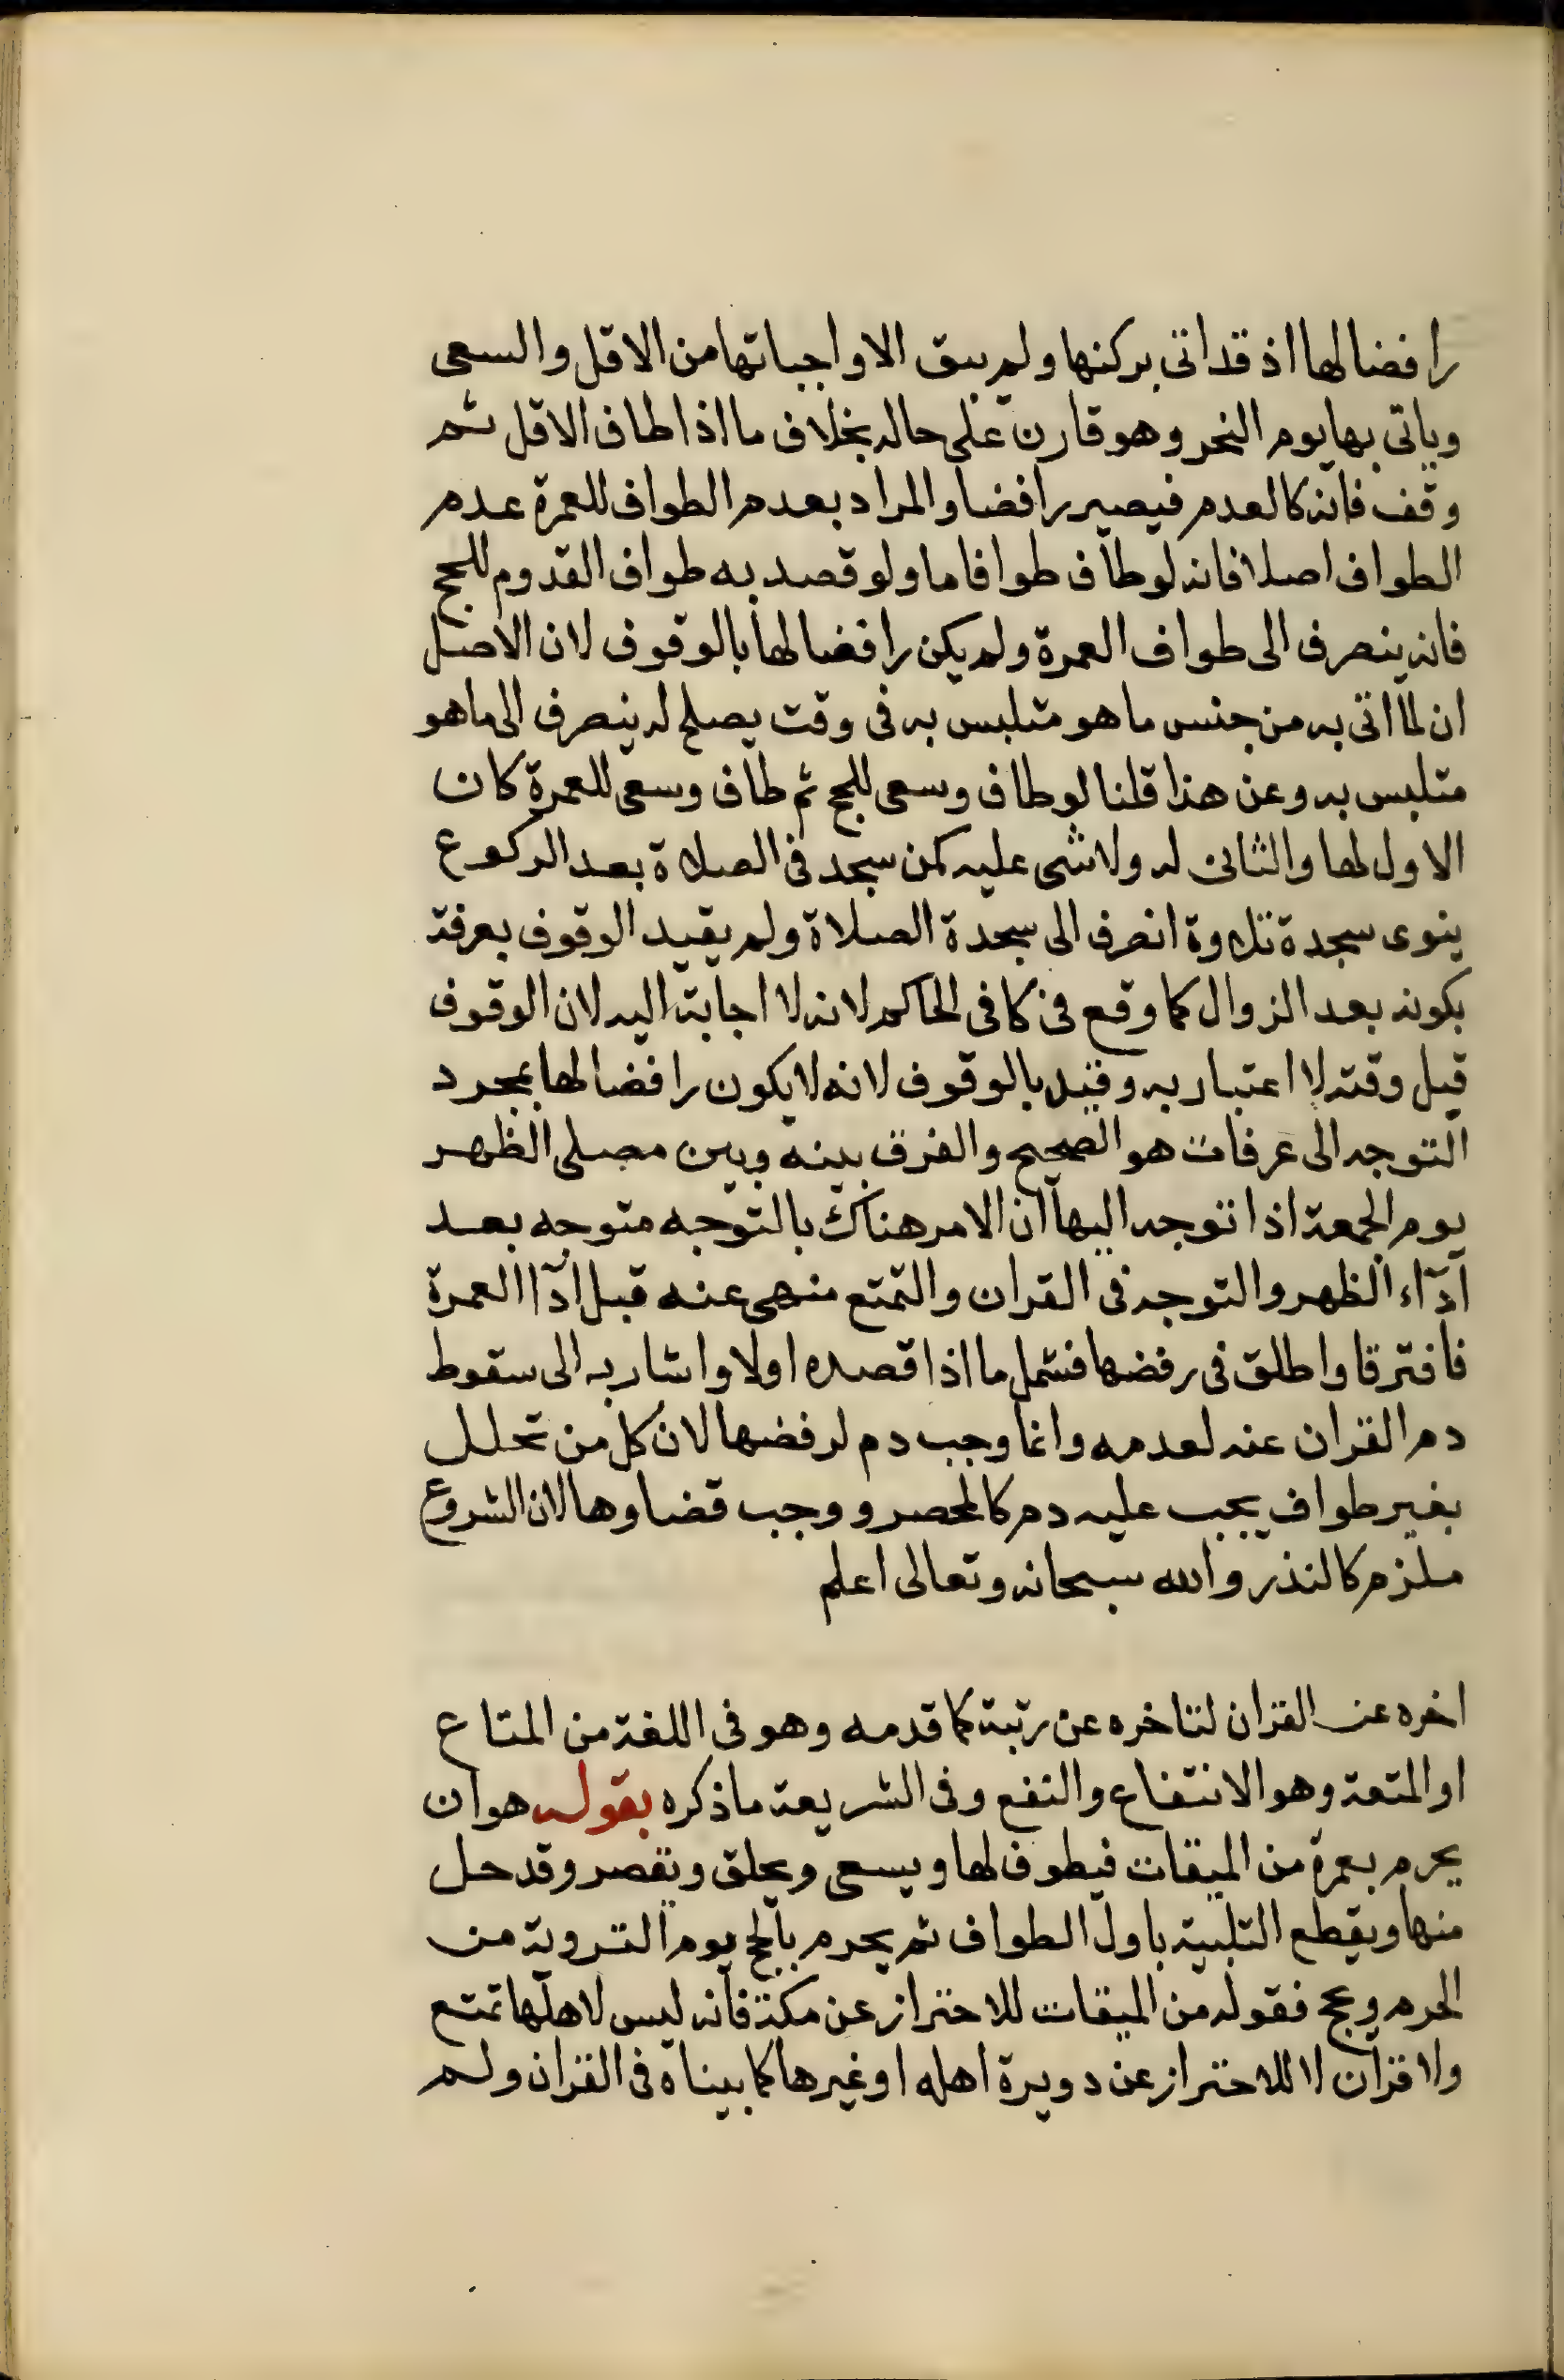 رافضا لها اذ قد اتى بركنها ولم يبق الا واجباتها من الاقل والسعى
وياتى بها يوم النحر وهو قارن على حاله بخلاف ما اذا طاف الاقل ثم
وقف فانه كالعدم فيصير رافضا والمراد بعدم الطواف للعمرة عدم
الطواف اصلا فانه لو طاف طوافا ما ولو قصد به طواف القدوم للحج
فانه ينصرف الى طواف العمرة ولم يكن رافضا لها بالوقوف لان الاصل
ان لما اتى به من جنس ما هو متلبس به فى وقت يصلح له ينصرف الى ما هو
متلبس به وعن هذا قلنا لو طاف وسعى للحج ثم طاف وسعى للعمرة كان
الاول لها والثانى له ولا شى عليه كمن سجد فى الصلاة بعد الركوع
ينوى سجدة تلاوة انصرف الى سجدة الصلاة ولم يقيد الوقوف بعرفة
بكونه بعد الزوال كما وقع فى كافى الحاكم لانه لا اجابة اليه لان الوقوف
قبل وقته لا اعتبار به وقيد بالوقوف لانه لا يكون رافضا لها بمجرد
التوجه الى عرفات هو الصحيح والفرق بينه وبين مصلى الظهر
يوم الجمعة اذا توجه اليها ان الامر هناك بالتوجه متوجه بعد
ادآء الظهر والتوجه فى القران والتمتع منهى عنه قبل ادآا العمرة
فافترقا واطلق فى رفضها فشمل ما اذا قصده اولا واشار به الى سقوط
دم القران عنه لعدمه وانما وجب دم لرفضها لان كل من تحلل
بغير طواف يجب عليه دم كالمحصر ووجب قضاوها لان الشروع
ملزم كالنذر والله سبحانه وتعالى اعلم
اخره عن القران لتاخره عن رتبة كما قدمه وهو فى اللغة من المتاع
او المتعة وهو الانتفاع والنفع وفى الشريعة ما ذكره بقوله هو ان
يحرم بعمرة من الميقات فيطوف لها ويسعى ويحلق ويقصر وقد حل
منها ويقطع التلبية باول الطواف ثم يحرم بالحج يوم التروية من
الحرم ويحج فقوله من الميقات للاحتراز عن مكة فانه ليس لاهلها تمتع
ولا قران لا للاحتراز عن دويرة اهله او غيرها كما بيناه فى القران ولم